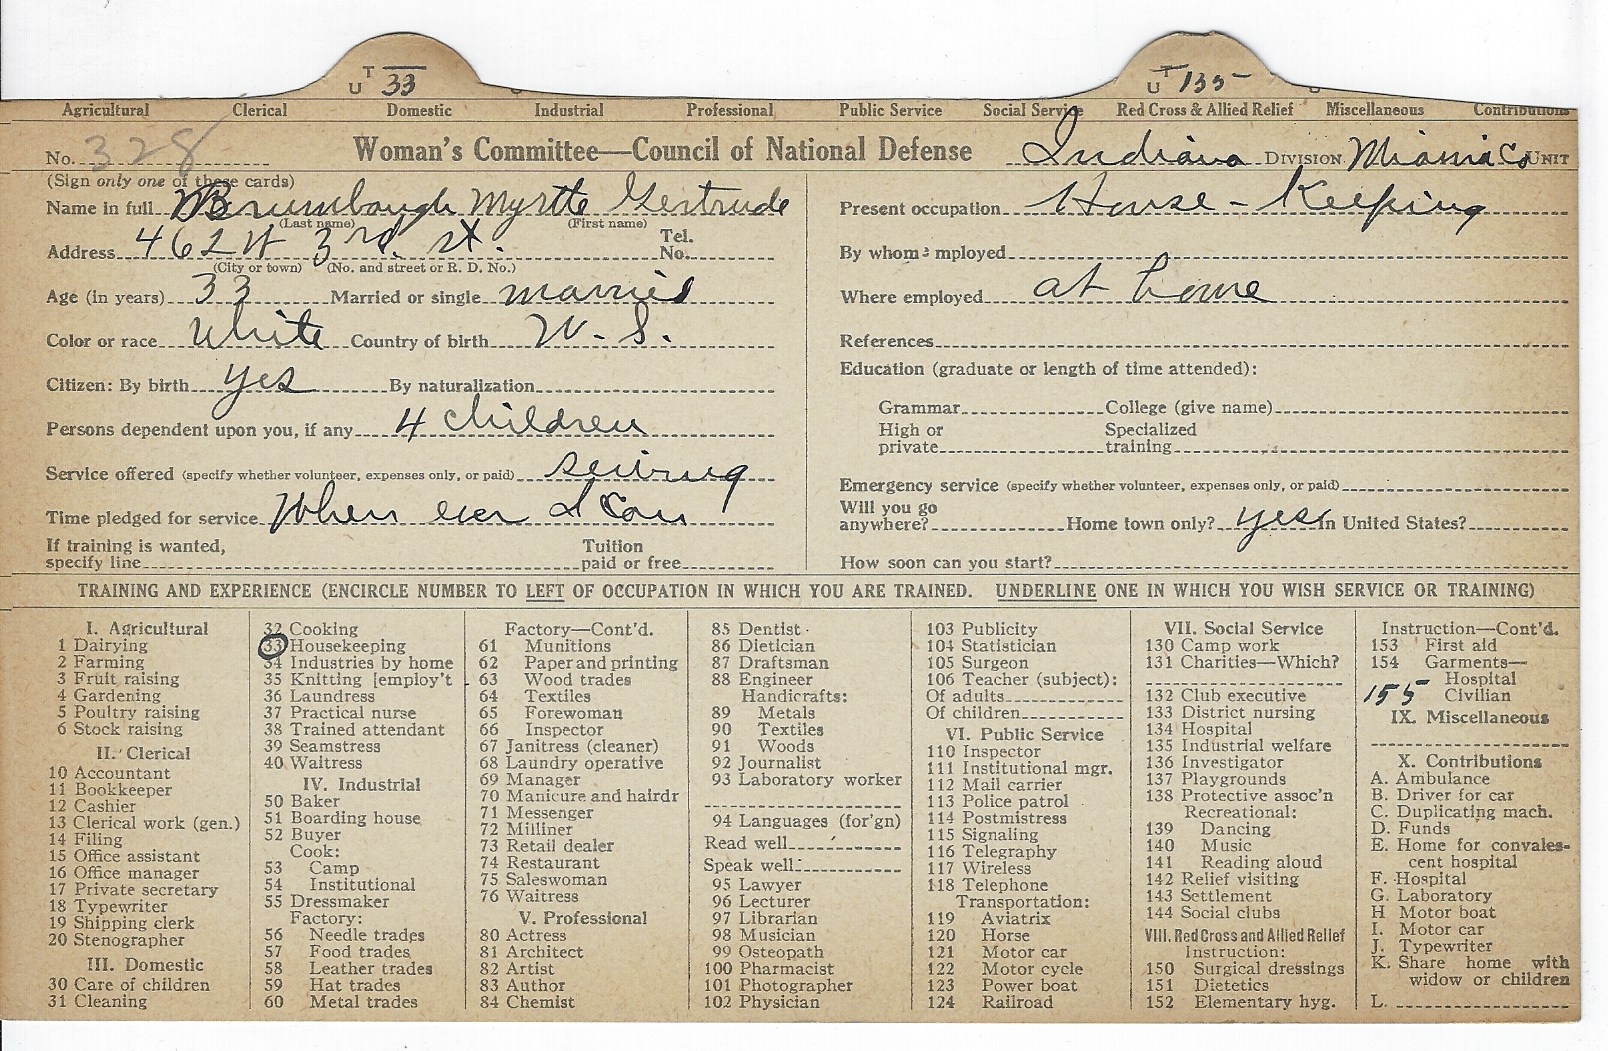 U T 33
U T 155
Agricultural Clerical Domestic Industrial Professional Public Service Social Service Red Cross & Allied Relief Miscellaneous Contributions
No. 328 Woman's Committee—Council of National Defense Indiana DIVISION Miami Co UNIT
(Sign only one of these cards)
Name in full Brumbaugh Myrtle Gertrude
(Last name) (First name)
Address 462 W 3rd. st. Tel. No.
(City or town) (No. and street or R. D. No.)
Age (in years) 33 Married or single married
Color or race White Country of birth U. S.
Citizen: By birth yes By naturalization
Persons dependent upon you, if any 4 children
Service offered (specify whether volunteer, expenses only, or paid) sewing
Time pledged for service When ever I Can
If training is wanted, specify line Tuition paid or free
Present occupation House-Keeping
By whom employed
Where employed at home
References
Education (graduate or length of time attended):
Grammar College (give name)
High or private Specialized training
Emergency service (specify whether volunteer, expenses only, or paid)
Will you go anywhere? Home town only? yes In United States?
How soon can you start?
TRAINING AND EXPERIENCE (ENCIRCLE NUMBER TO LEFT OF OCCUPATION IN WHICH YOU ARE TRAINED. UNDERLINE ONE IN WHICH YOU WISH SERVICE OR TRAINING)
I. Agricultural
1 Dairying
2 Farming
3 Fruit raising
4 Gardening
5 Poultry raising
6 Stock raising
II. Clerical
10 Accountant
11 Bookkeeper
12 Cashier
13 Clerical work (gen.)
14 Filing
15 Office assistant
16 Office manager
17 Private secretary
18 Typewriter
19 Shipping clerk
20 Stenographer
III. Domestic
30 Care of children
31 Cleaning
32 Cooking
33 Housekeeping
34 Industries by home
35 Knitting [employ't
36 Laundress
37 Practical nurse
38 Trained attendant
39 Seamstress
40 Waitress
IV. Industrial
50 Baker
51 Boarding house
52 Buyer
Cook:
53 Camp
54 Institutional
55 Dressmaker
Factory:
56 Needle trades
57 Food trades
58 Leather trades
59 Hat trades
60 Metal trades
Factory—Cont'd.
61 Munitions
62 Paper and printing
63 Wood trades
64 Textiles
65 Forewoman
66 Inspector
67 Janitress (cleaner)
68 Laundry operative
69 Manager
70 Manicure and hairdr
71 Messenger
72 Milliner
73 Retail dealer
74 Restaurant
75 Saleswoman
76 Waitress
V. Professional
80 Actress
81 Architect
82 Artist
83 Author
84 Chemist
85 Dentist
86 Dietician
87 Draftsman
88 Engineer
Handicrafts:
89 Metals
90 Textiles
91 Woods
92 Journalist
93 Laboratory worker
94 Languages (for'gn)
Read well
Speak well
95 Lawyer
96 Lecturer
97 Librarian
98 Musician
99 Osteopath
100 Pharmacist
101 Photographer
102 Physician
103 Publicity
104 Statistician
105 Surgeon
106 Teacher (subject):
Of adults
Of children
VI. Public Service
110 Inspector
111 Institutional mgr.
112 Mail carrier
113 Police patrol
114 Postmistress
115 Signaling
116 Telegraphy
117 Wireless
118 Telephone
Transportation:
119 Aviatrix
120 Horse
121 Motor car
122 Motor cycle
123 Power boat
124 Railroad
VII. Social Service
130 Camp work
131 Charities—Which?
132 Club executive
133 District nursing
134 Hospital
135 Industrial welfare
136 Investigator
137 Playgrounds
138 Protective assoc'n
Recreational:
139 Dancing
140 Music
141 Reading aloud
142 Relief visiting
143 Settlement
144 Social clubs
VIII. Red Cross and Allied Relief
Instruction:
150 Surgical dressings
151 Dietetics
152 Elementary hyg.
Instruction—Cont'd.
153 First aid
154 Garments—
Hospital
155 Civilian
IX. Miscellaneous
X. Contributions
A. Ambulance
B. Driver for car
C. Duplicating mach.
D. Funds
E. Home for convales-
cent hospital
F. Hospital
G. Laboratory
H Motor boat
I. Motor car
J. Typewriter
K. Share home with
widow or children
L.